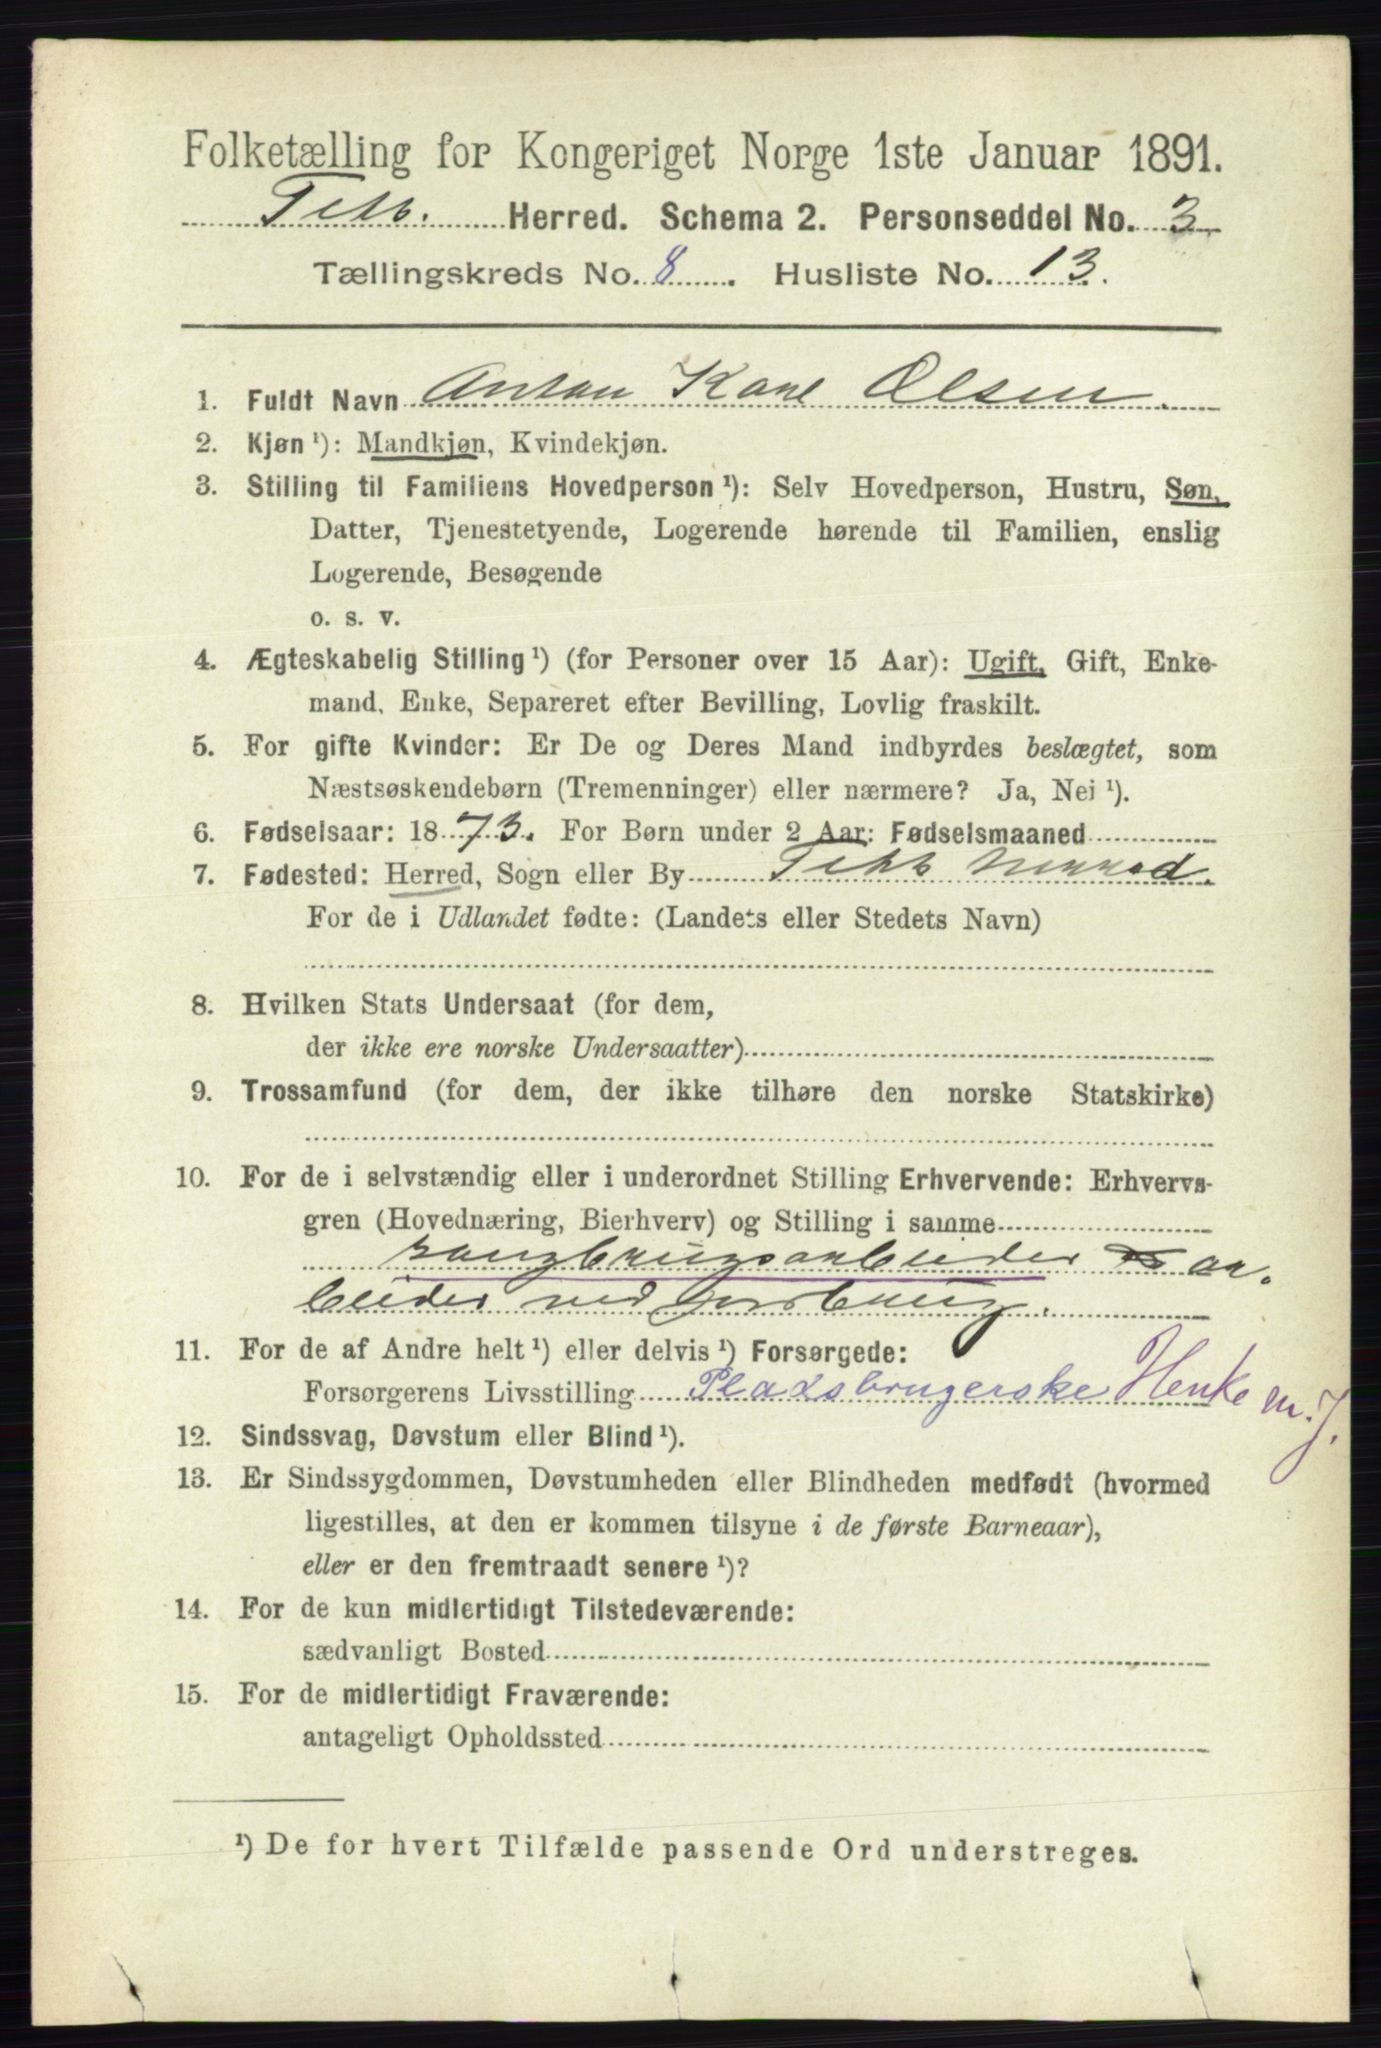 Folketælling for Kongeriget Norge 1ste Januar 1891.
Herred. Schema 2. Personseddel No. 3
Tællingskreds No. 8. Husliste No. 13.
1. Fuldt Navn Anton Karl Olsen.
2. Kjøn ¹): Mandkjøn, Kvindekjøn.
3. Stilling til Familiens Hovedperson ¹): Selv Hovedperson, Hustru, Søn,
Datter, Tjenestetyende, Logerende hørende til Familien, enslig
Logerende, Besøgende
o. s. v.
4. Ægteskabelig Stilling ¹) (for Personer over 15 Aar): Ugift, Gift, Enke-
mand, Enke, Separeret efter Bevilling, Lovlig fraskilt.
5. For gifte Kvinder: Er De og Deres Mand indbyrdes beslægtet, som
Næstsøskendebørn (Tremenninger) eller nærmere? Ja, Nei ¹).
6. Fødselsaar: 1873. For Børn under 2 Aar: Fødselsmaaned
7. Fødested: Herred, Sogn eller By
For de i Udlandet fødte: (Landets eller Stedets Navn)
8. Hvilken Stats Undersaat (for dem,
der ikke ere norske Undersaatter)
9. Trossamfund (for dem, der ikke tilhøre den norske Statskirke)
10. For de i selvstændig eller i underordnet Stilling Erhvervende: Erhvervs-
gren (Hovednæring, Bierhverv) og Stilling i samme
ar-
beider ved
11. For de af Andre helt ¹) eller delvis ¹) Forsørgede:
Forsørgerens Livsstilling Pladsbrugerske Henke m. J.
12. Sindssvag, Døvstum eller Blind ¹).
13. Er Sindssygdommen, Døvstumheden eller Blindheden medfødt (hvormed
ligestilles, at den er kommen tilsyne i de første Barneaar),
eller er den fremtraadt senere ¹)?
14. For de kun midlertidigt Tilstedeværende:
sædvanligt Bosted
15. For de midlertidigt Fraværende:
antageligt Opholdssted
¹) De for hvert Tilfælde passende Ord understreges.